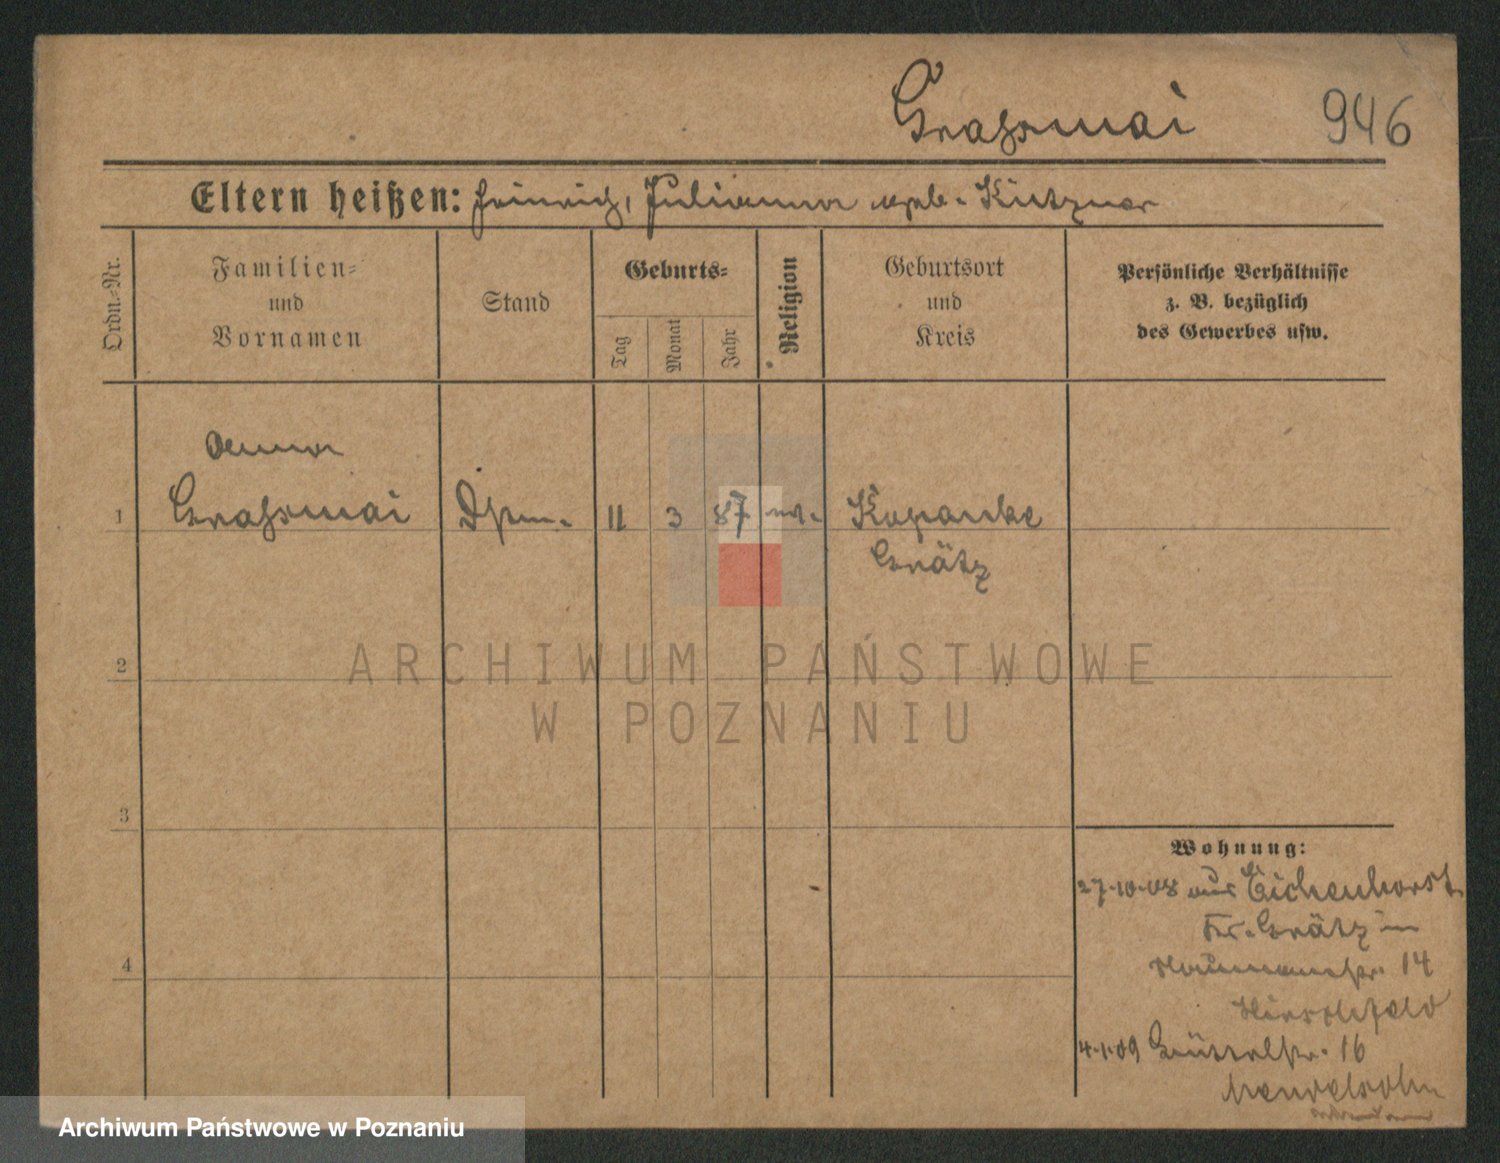 Grassmai 946
Eltern heißen: Heinrich, Julianna geb. Kutzner
Ordn.-Nr.
Familien-
und
Vornamen
Stand
Geburts-
Tag
Monat
Jahr
Religion
Geburtsort
und
Kreis
Persönliche Verhältnisse
z. B. bezüglich
des Gewerbes usw.
Anna
1 Grassmai 11 3 87 ev. Kopanke
Grätz
2
ARCHIWUM PAŃSTWOWE
W POZNANIU
3
Wohnung:
27.10.08 aus Eichenhorst
Kr. Grätz in
4
Naumannstr. 14
Hirschfeld
4.1.09 16
Mendelsohn
Archiwum Państwowe w Poznaniu